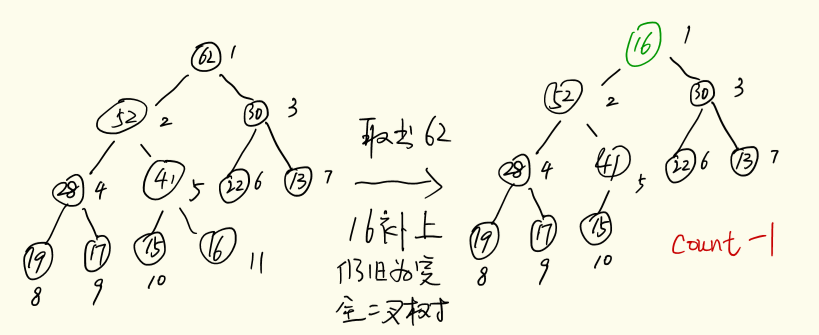 62 1
52 2
30 3
28 4
41 5
22 6
13 7
19 8
17 9
15 10
16 11
取出 62
16补上
仍旧为完
全二叉树
16 1
52 2
30 3
28 4
41 5
22 6
13 7
19 8
17 9
15 10
count -1